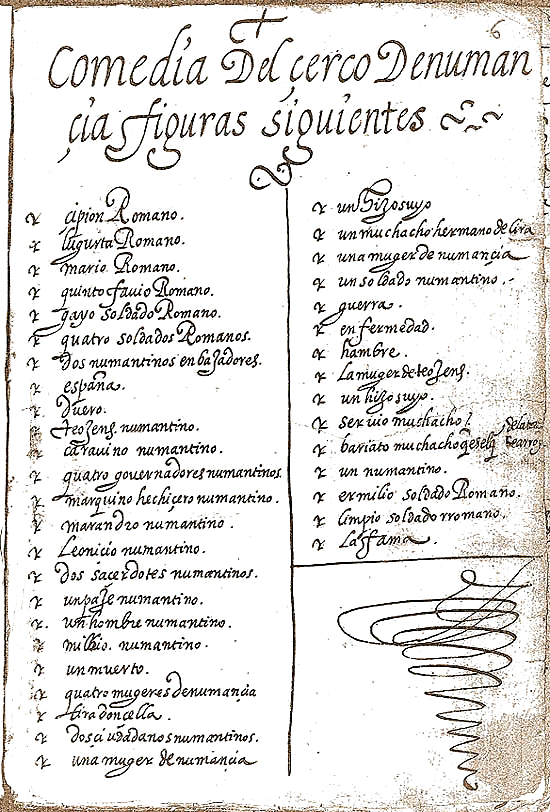 6
Comedia Del çerco Denuman
çia ffiguras siguientes
çipion Romano.
Iugurta Romano.
mario Romano.
quinto favio Romano.
gayo soldado Romano.
quatro soldados Romanos.
Dos numantinos enbajadores.
españa.
Duero.
teojens numantino.
caravino numantino.
quatro governadores numantinos
marquino hechiçero numantino.
marandro numantino.
Leonicio numantino.
Dos sacerdotes numantinos.
un paje numantino.
un hombre numantino.
milbio. numantino.
un muerto.
quatro mugeres denumançia
lira donçella.
dos çiudadanos numantinos.
una muger de numançia
un hijo suyo
un muchacho hermano de lira
una muger de numançia
un soldado numantino.
guerra.
enfermedad.
hambre.
La muger de teojens.
un hijo suyo.
servio muchacho
bariato muchacho ques el q se arroja
dela torre
un numantino.
ermilio soldado Romano.
limpio soldado rromano.
La ffama